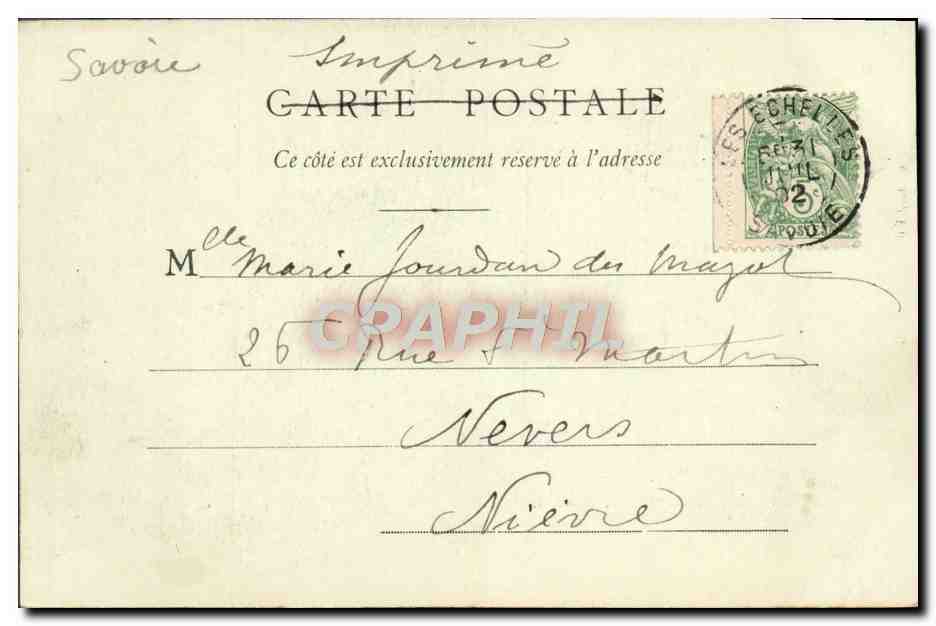 Savoie
Imprimé
CARTE POSTALE
Ce côté est exclusivement réservé à l'adresse
LES ECHELLES
31
JUIL
02
SAVOIE
5c
POSTES
Mlle Marie Jourdan du Mazot
CRAPHIL
25 Rue St Martin
Nevers
Nièvre